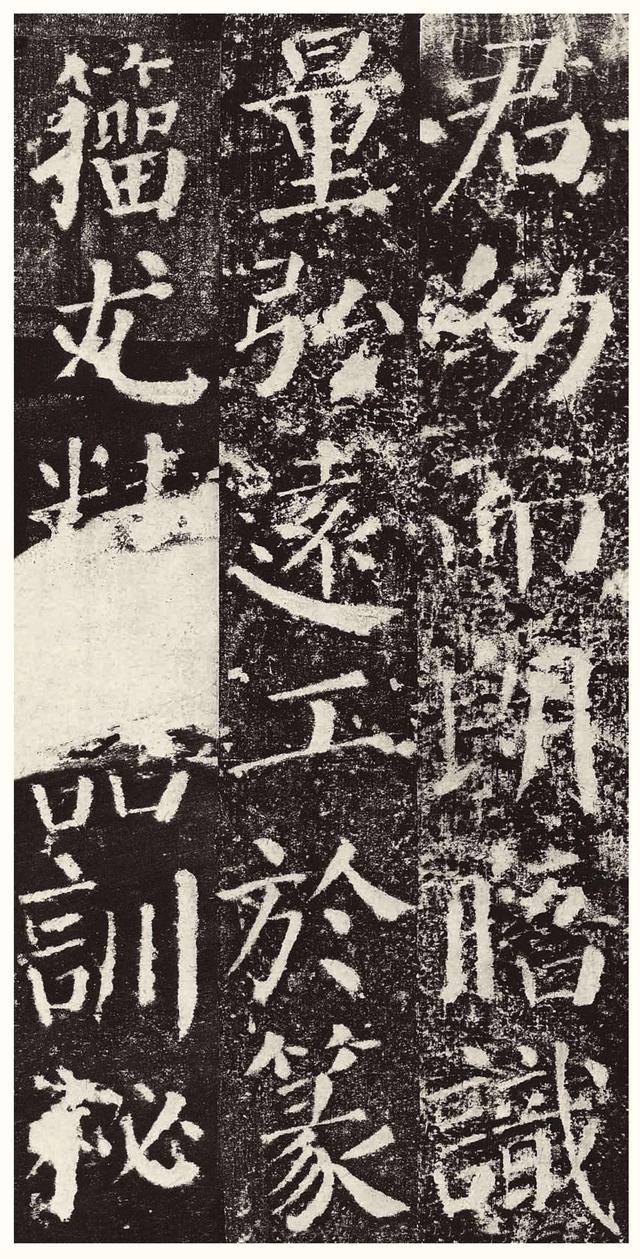 君幼而朗晤識
量弘遠工於篆
籕尤精訓秘